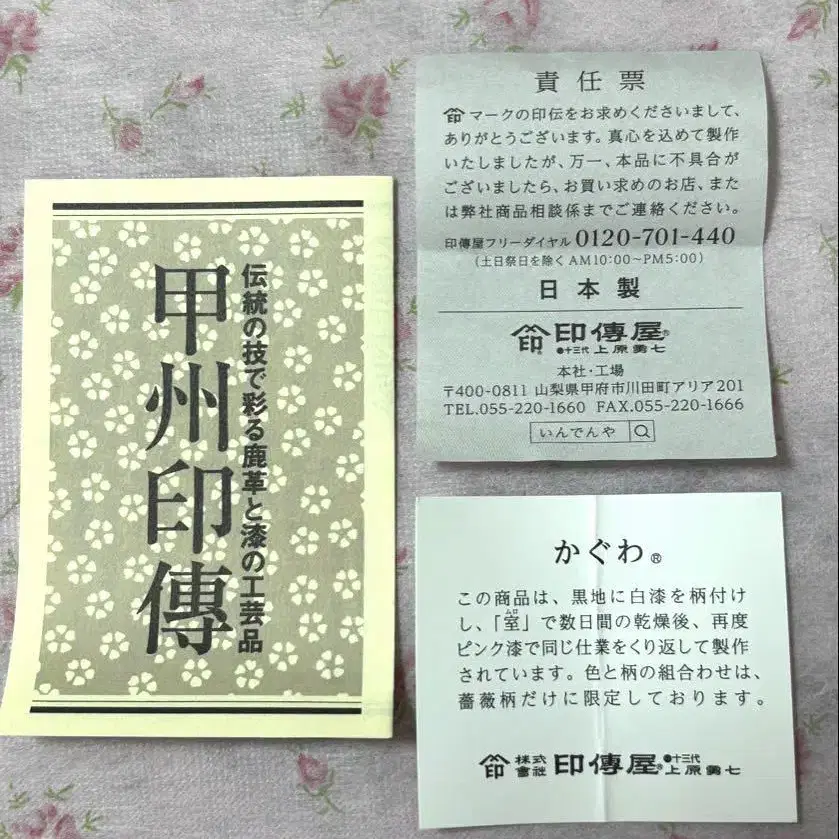 甲州印傳
伝統の技で彩る鹿革と漆の工芸品
責任票
印マークの印伝をお求めくださいまして、
ありがとうございます。真心を込めて製作
いたしましたが、万一、本品に不具合が
ございましたら、お買い求めのお店、また
は弊社商品相談係までご連絡ください。
印傳屋フリーダイヤル 0120-701-440
(土日祭日を除く AM10:00~PM5:00)
日本製
印 印傳屋®
●十三代 上原勇七
本社・工場
〒400-0811 山梨県甲府市川田町アリア201
TEL.055-220-1660 FAX.055-220-1666
いんでんや
かぐわ®
この商品は、黒地に白漆を柄付け
ムロ
し、「室」で数日間の乾燥後、再度
ピンク漆で同じ仕業をくり返して製作
されています。色と柄の組合わせは、
薔薇柄だけに限定しております。
印 株式會社 印傳屋® ●十三代 上原勇七